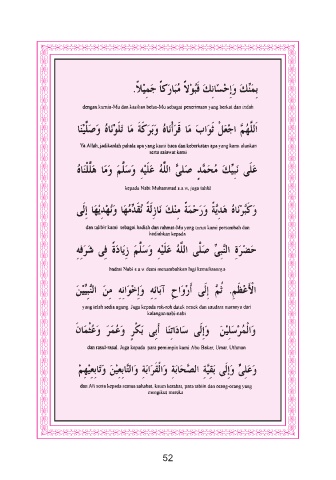 بِمَنِّكَ وَإِحْسَانِكَ قَبُوْلاً مُبَارَكاً جَمِيْلاً.
dengan kurnia-Mu dan kasihan belas-Mu sebagai penerimaan yang berkat dan indah
اَللَّهُمَّ اجْعَلْ ثَوَابَ مَا قَرَأْنَاهُ وَبَرَكَةَ مَا تَلَوْنَاهُ وَصَلَّيْنَا
Ya Allah, jadikanlah pahala apa yang kami baca dan keberkatan apa yang kami alunkan
serta selawat kami
عَلَى نَبِيِّكَ مُحَمَّدٍ صَلَّى اللَّهُ عَلَيْهِ وَسَلَّمَ وَمَا هَلَّلْنَاهُ
kepada Nabi Muhammad s.a.w, juga tahlil
وَكَبَّرْنَاهُ هَدِيَّةً وَرَحْمَةً مِنْكَ نَازِلَةً نُقَدِّمُهَا وَنُهْدِيْهَا إِلَى
dan takbir kami sebagai hadiah dan rahmat-Mu yang turun kami persembah dan
hadiahkan kepada
حَضْرَةِ النَّبِيِّ صَلَّى اللَّهُ عَلَيْهِ وَسَلَّمَ زِيَادَةً فِي شَرَفِهِ
hadrat Nabi s.a.w demi menambahkan lagi kemuliaannya
الْأَعْظَمِ. ثُمَّ إِلَى أَرْوَاحِ آبَائِهِ وَإِخْوَانِهِ مِنَ النَّبِيِّيْنَ
yang telah sedia agung. Juga kepada roh-roh datuk nenek dan saudara maranya dari
kalangan nabi-nabi
وَالْمُرْسَلِيْنَ وَإِلَى سَادَاتِنَا أَبِي بَكْرٍ وَعُمَرَ وَعُثْمَانَ
dan rasul-rasul. Juga kepada para pemimpin kami Abu Bakar, Umar, Uthman
وَعَلِيٍّ وَإِلَى بَقِيَّةِ الصَّحَابَةِ وَالْقَرَابَةِ وَالتَّابِعِيْنَ وَتَابِعِيْهِمْ
dan Ali serta kepada semua sahabat, kaum kerabat, para tabiin dan orang-orang yang
mengikut mereka
52